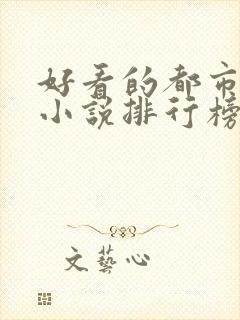 好看的都市
小说排行榜
文藝心